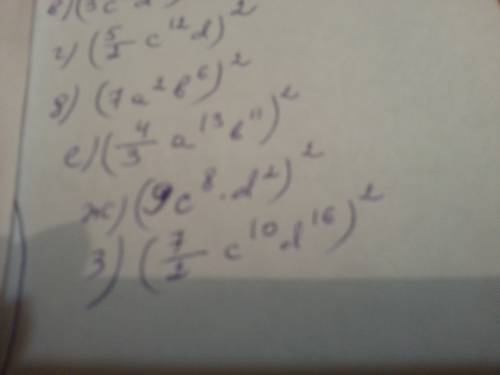 г) (5/2 c¹² d)²
д) (7a² b⁶)²
е) (4/3 a¹³ b¹¹)²
ж) (9c⁸ · d²)²
з) (7/2 c¹⁰ d¹⁶)²